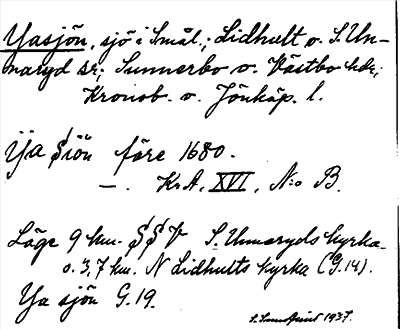 Yasjön, sjö i Smål.; Lidhult o. S. Un-
naryd sr; Sunnerbo o. Västbo hdr;
Kronob. o. Jönköp. l.
Ÿa Siön före 1680.
—. Kr.A. XVI, N:o B.
Läge 9 km. SSV S. Unnaryds kyrka
o. 3,7 km. N Lidhults kyrka (G. 14).
Ya sjön G. 19.
1937.